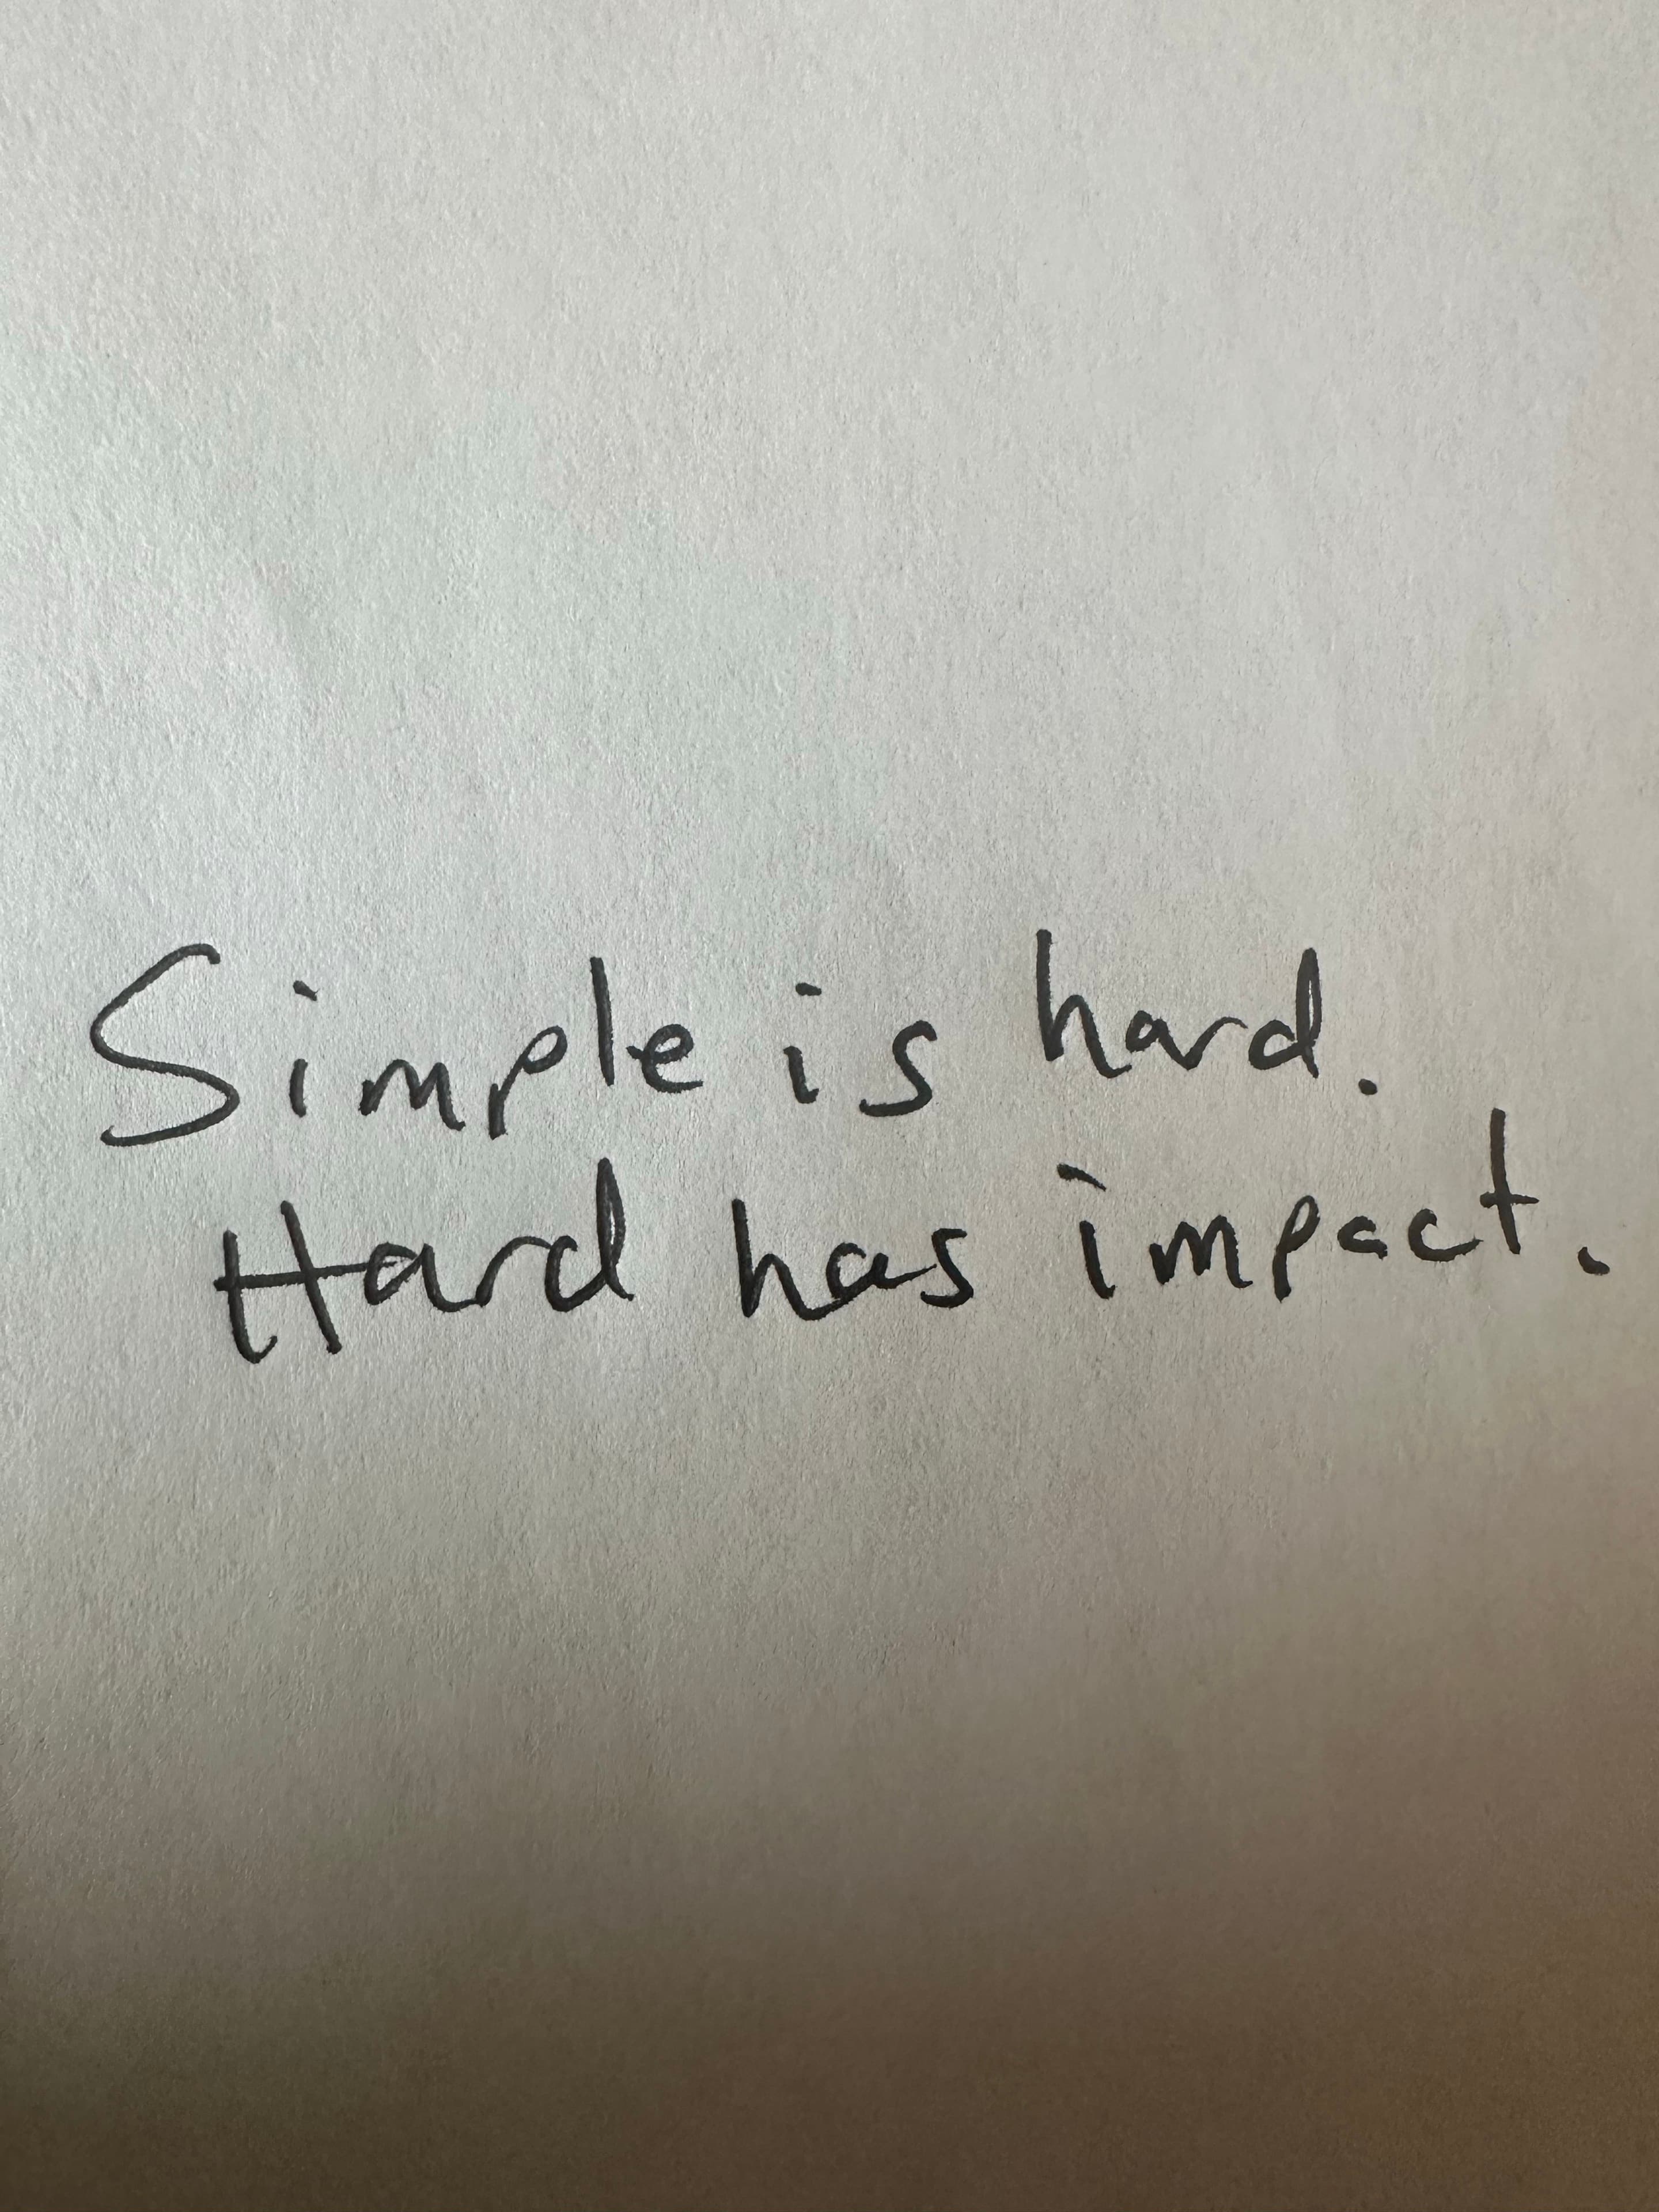 Simple is hard.
Hard has impact.